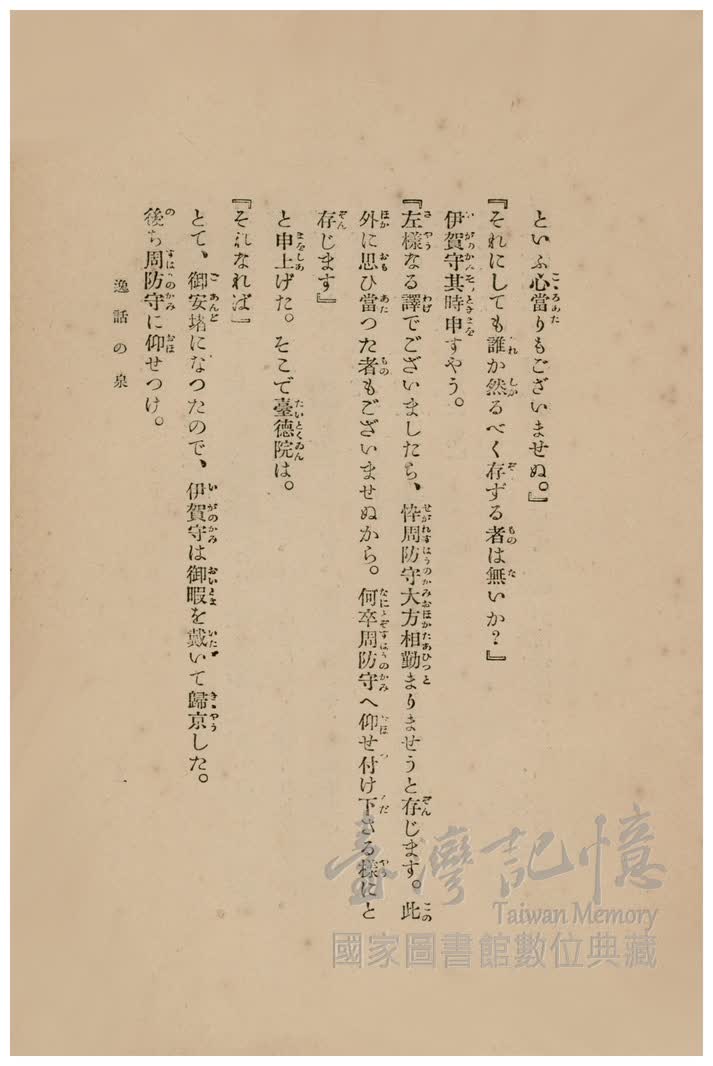 といふ心當りもございませぬ。』
『それにしても誰か然るべく存ずる者は無いか?』
伊賀守其時申すやう。
『左樣なる譯でございましたら、悴周防守大方相勤まりませうと存じます。此
外に思ひ當つた者もございませぬから。何卒周防守へ仰せ付け下さる樣にと
存じます』
と申上げた。そこで臺德院は。
『それなれば』
とて、御安堵になつたので、伊賀守は御暇を戴いて歸京した。
後ち周防守に仰せつけ。
逸話の泉
臺灣記憶
Taiwan Memory
國家圖書館數位典藏